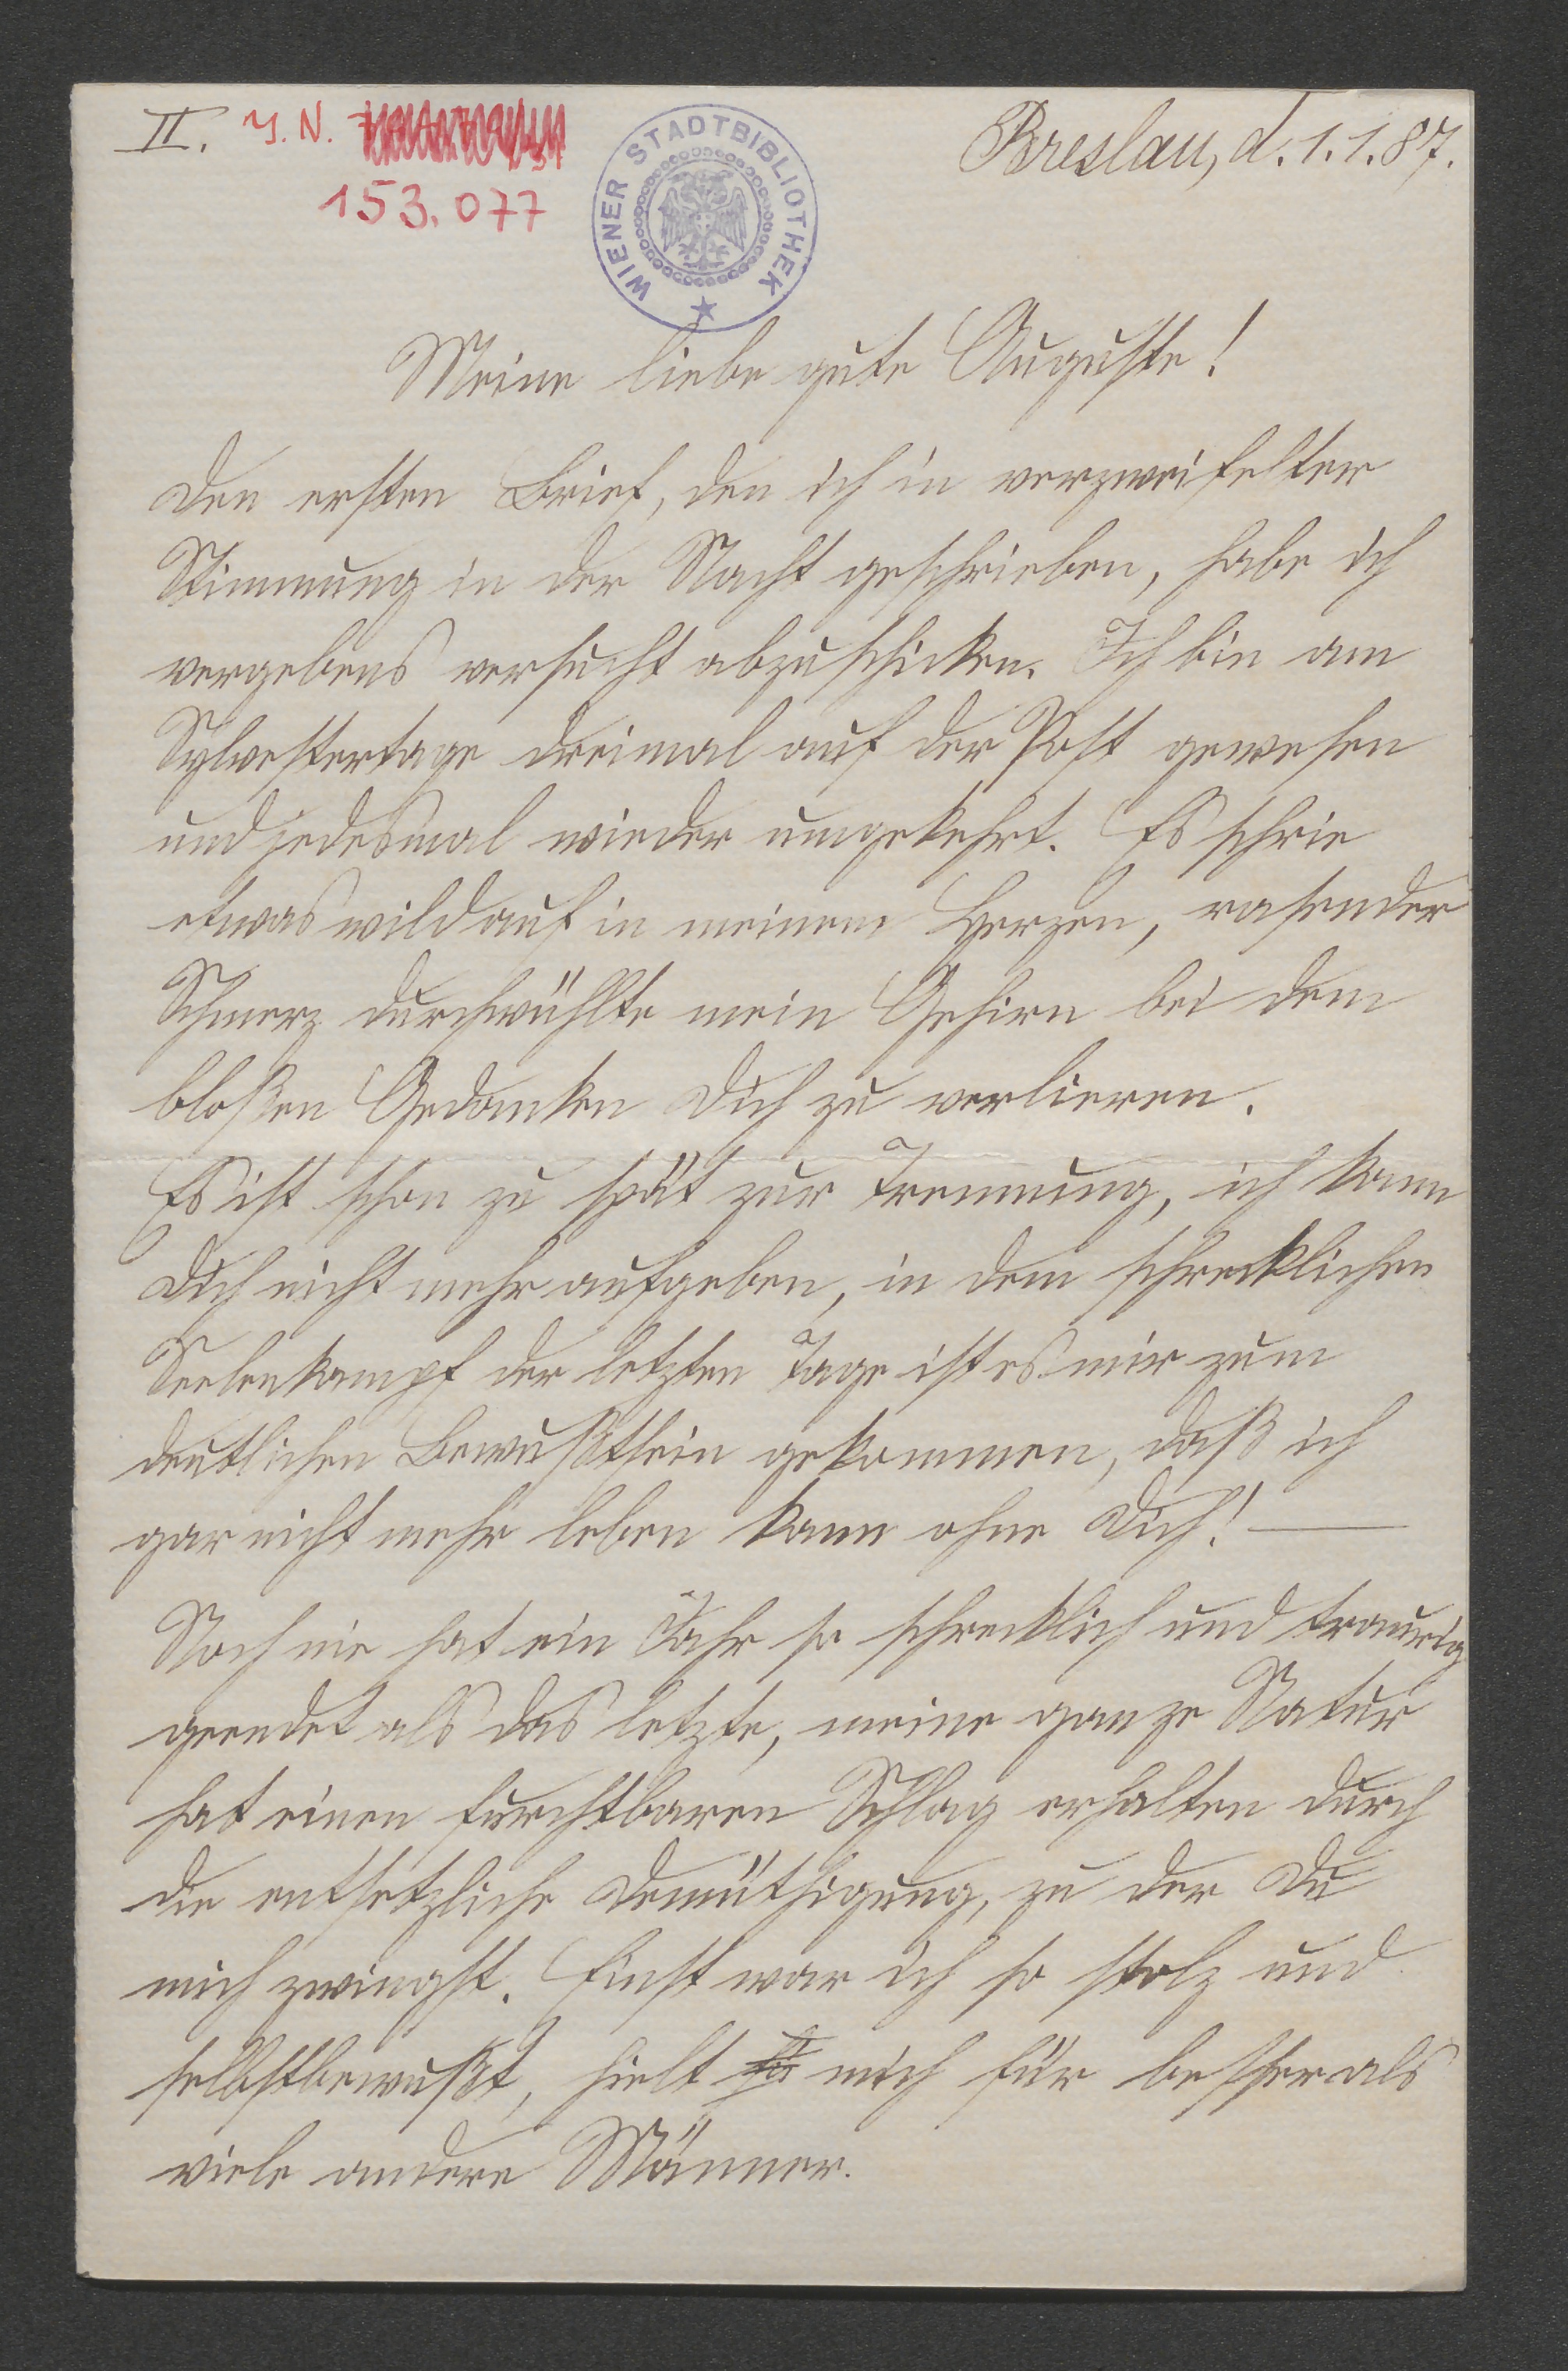 II. J. N.
153.077
WIENER STADTBIBLIOTHEK
Breslau, d. 1. 1. 87.
Meine liebe gute Auguste!
Den ersten Brief, den ich in verzweifelter
Stimmung in der Nacht geschrieben, habe ich
vergebens versucht abzuschicken. Ich bin am
Sylvestertage dreimal auf der Post gewesen
und jedesmal wieder umgekehrt. Es schrie
etwas wild auf in meinem Herzen, rasender
Schmerz durchwühlte mein Gehirn bei dem
bloßen Gedanken Dich zu verlieren.
Es ist schon zu spät zur Trennung, ich kann
Dich nicht mehr aufgeben, in dem schrecklichen
Seelenkampf der letzten Tage ist es mir zum
deutlichen Bewußtsein gekommen, daß ich
gar nicht mehr leben kann ohne Dich! —
Noch nie hat ein Jahr so schrecklich und traurig
geendet als das letzte, meine ganze Natur
hat einen furchtbaren Schlag erhalten durch
die entsetzliche Demüthigung, zu der Du
mich zwingst. Einst war ich so stolz und
selbstbewußt, hielt mich für besser als
viele andere Männer.